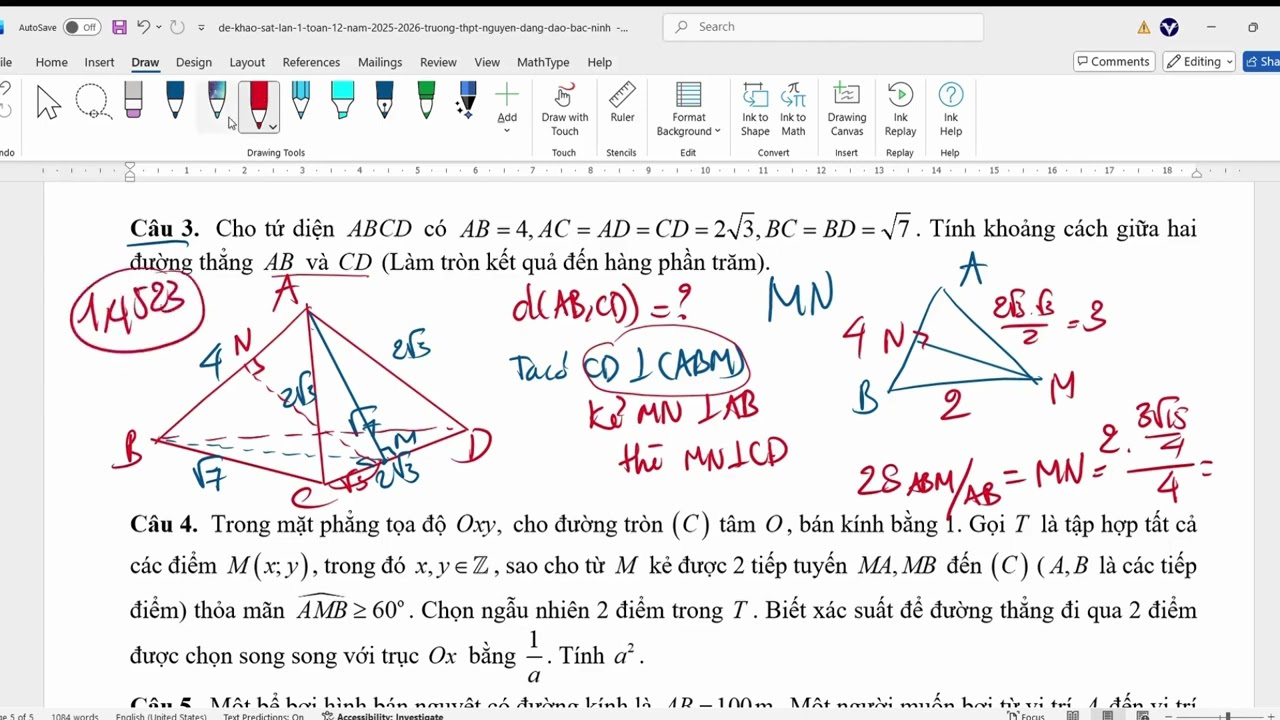 AutoSave Off de-khao-sat-lan-1-toan-12-nam-2025-2026-truong-thpt-nguyen-dang-dao-bac-ninh -... Search
ile Home Insert Draw Design Layout References Mailings Review View MathType Help Comments Editing Sha
Add Draw with Touch Ruler Format Background Ink to Shape Ink to Math Drawing Canvas Ink Replay Ink Help
ndo Drawing Tools Touch Stencils Edit Convert Insert Replay Help
1 2 3 4 5 6 7 8 9 10 11 12 13 14 15 16 17 18
Câu 3. Cho tứ diện ABCD có AB = 4, AC = AD = CD = 2√3, BC = BD = √7. Tính khoảng cách giữa hai
đường thẳng AB và CD (Làm tròn kết quả đến hàng phần trăm).
1,4523
A
N
4
2√3
2√3
√7
B
M
D
√7
C
√3
2√3
d(AB,CD) = ?
Ta có CD ⊥ (ABM)
kẻ MN ⊥ AB
thì MN ⊥ CD
MN
A
4 N
2√3.√3/2 = 3
B
2
M
2S ABM/AB = MN = 2. 3√15/4 / 4 =
Câu 4. Trong mặt phẳng tọa độ Oxy, cho đường tròn (C) tâm O, bán kính bằng 1. Gọi T là tập hợp tất cả
các điểm M(x; y), trong đó x, y ∈ ℤ, sao cho từ M kẻ được 2 tiếp tuyến MA, MB đến (C) (A, B là các tiếp
điểm) thỏa mãn AMB ≥ 60°. Chọn ngẫu nhiên 2 điểm trong T. Biết xác suất để đường thẳng đi qua 2 điểm
được chọn song song với trục Ox bằng 1/a. Tính a².
Câu 5. Một bể bơi hình bán nguyệt có đường kính là AB = 100m. Một người muốn bơi từ vị trí A đến vị trí
ge 5 of 5 1084 words English (United States) Text Predictions: On Accessibility: Investigate Focus